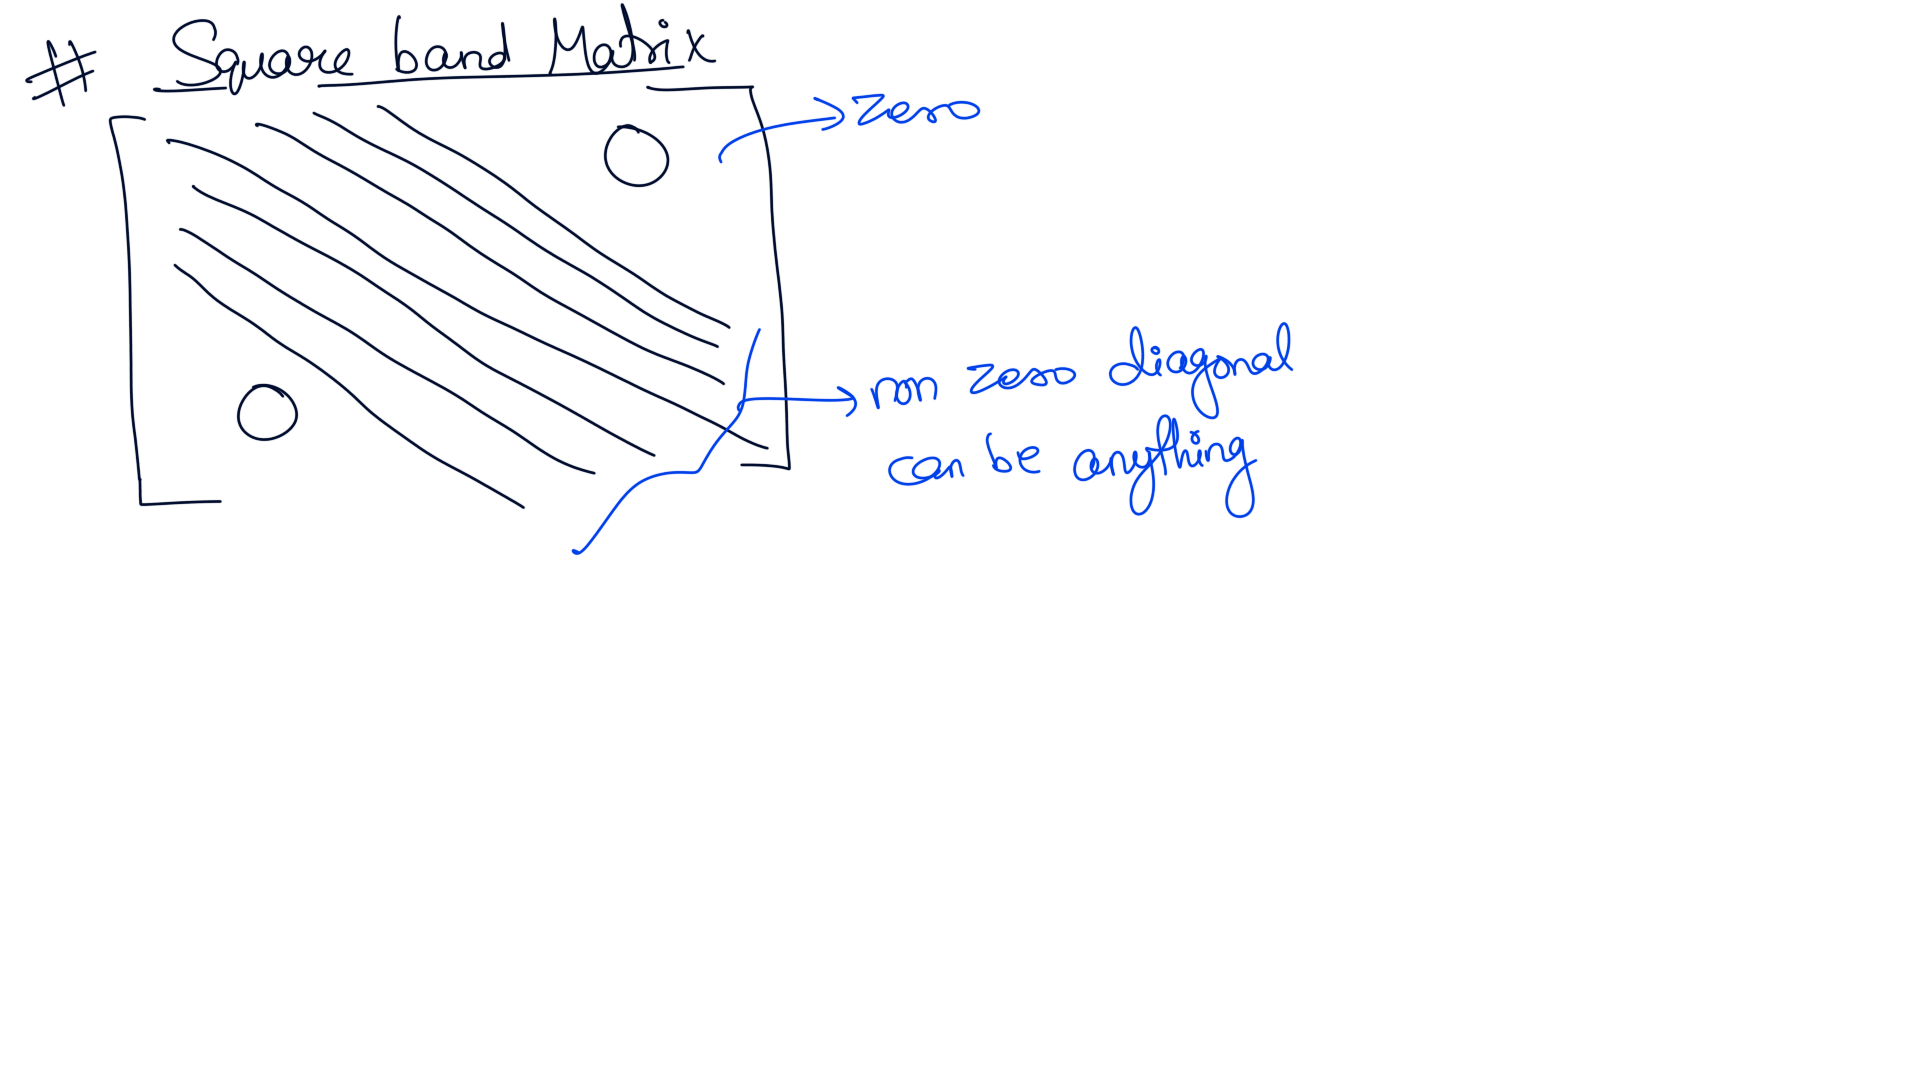 # Square band Matrix
zero
O
O
non zero diagonal
can be anything